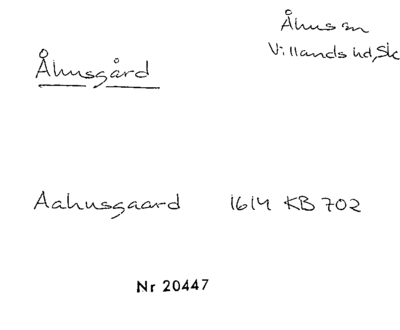 Åhus sn
Villands hd, Sk
Åhusgård
Aahusgaard 1614 KB 702
Nr 20447